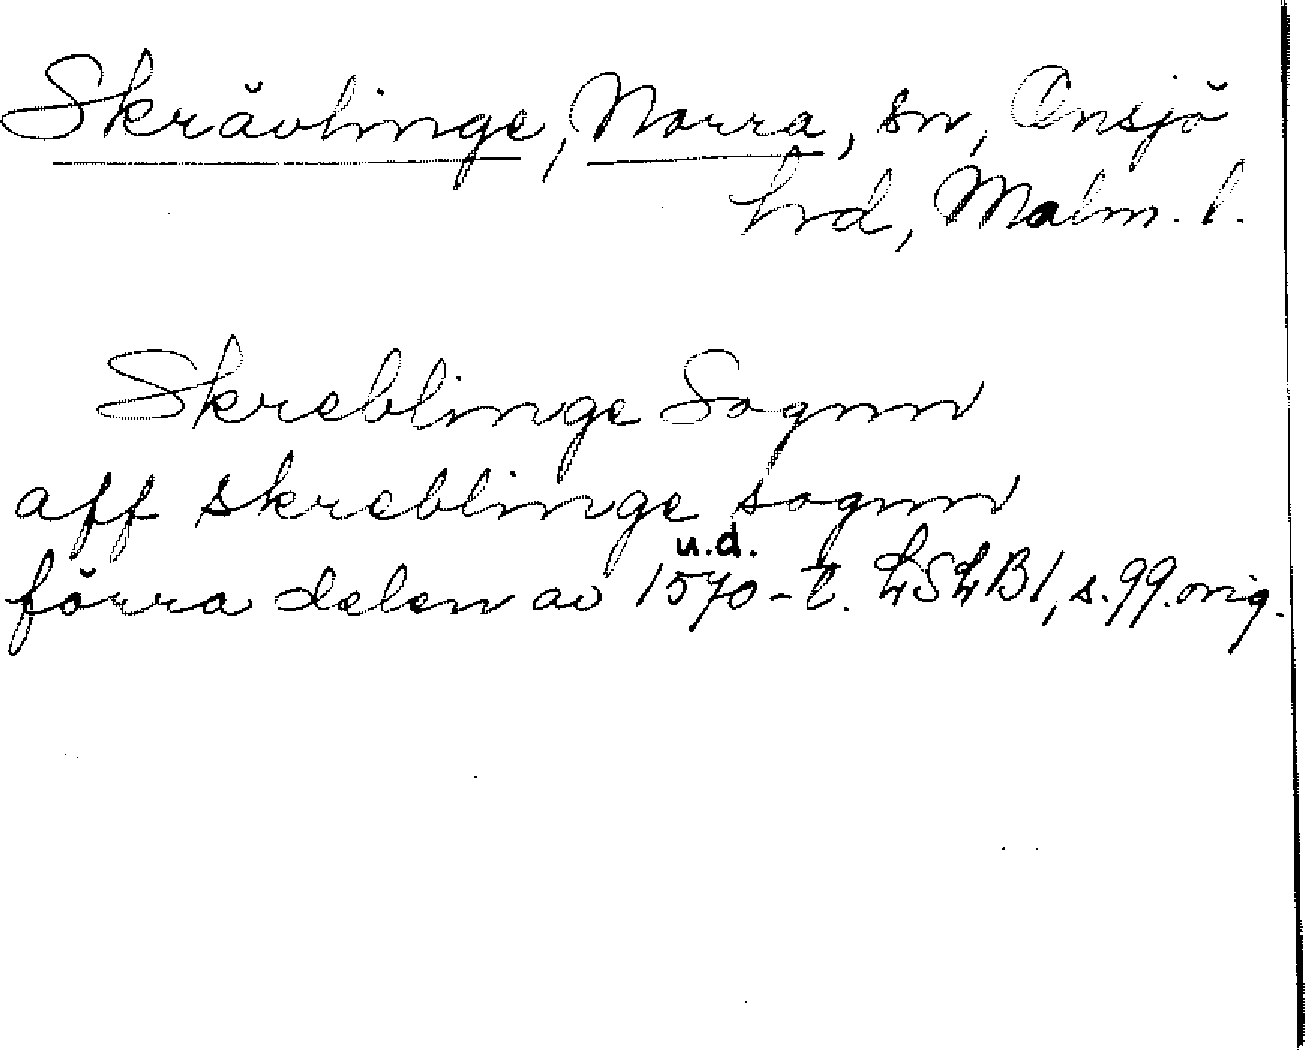 Skrävlinge, Norra, sn, Onsjö
hrd, Malm. l.
Skreblinge Sognn
aff skreblinge sognn
u.d.
förra delen av 1570-t. LSLB1, s. 99. orig.